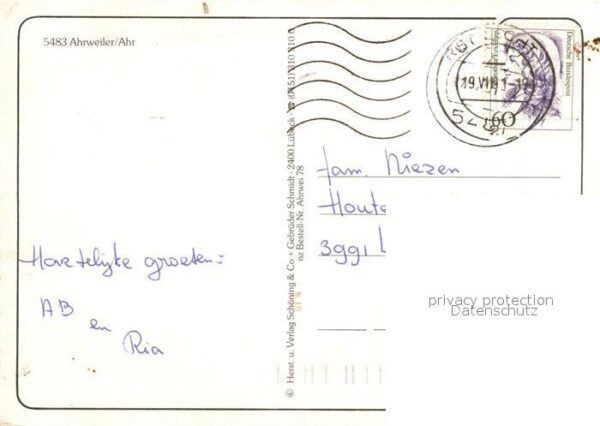 5483 Ahrweiler/Ahr
Hartelijke groeten:
AB
en
Ria
© Herst. u. Verlag Schöning & Co + Gebrüder Schmidt · 2400 Lübeck ☎ (0451) 310 310
nz Bestell-Nr. Ahrwei 78
Deutsche Bundespost
60
19.VII.91-1
54
fam. Niezen
Houte
3991
privacy protection
Datenschutz